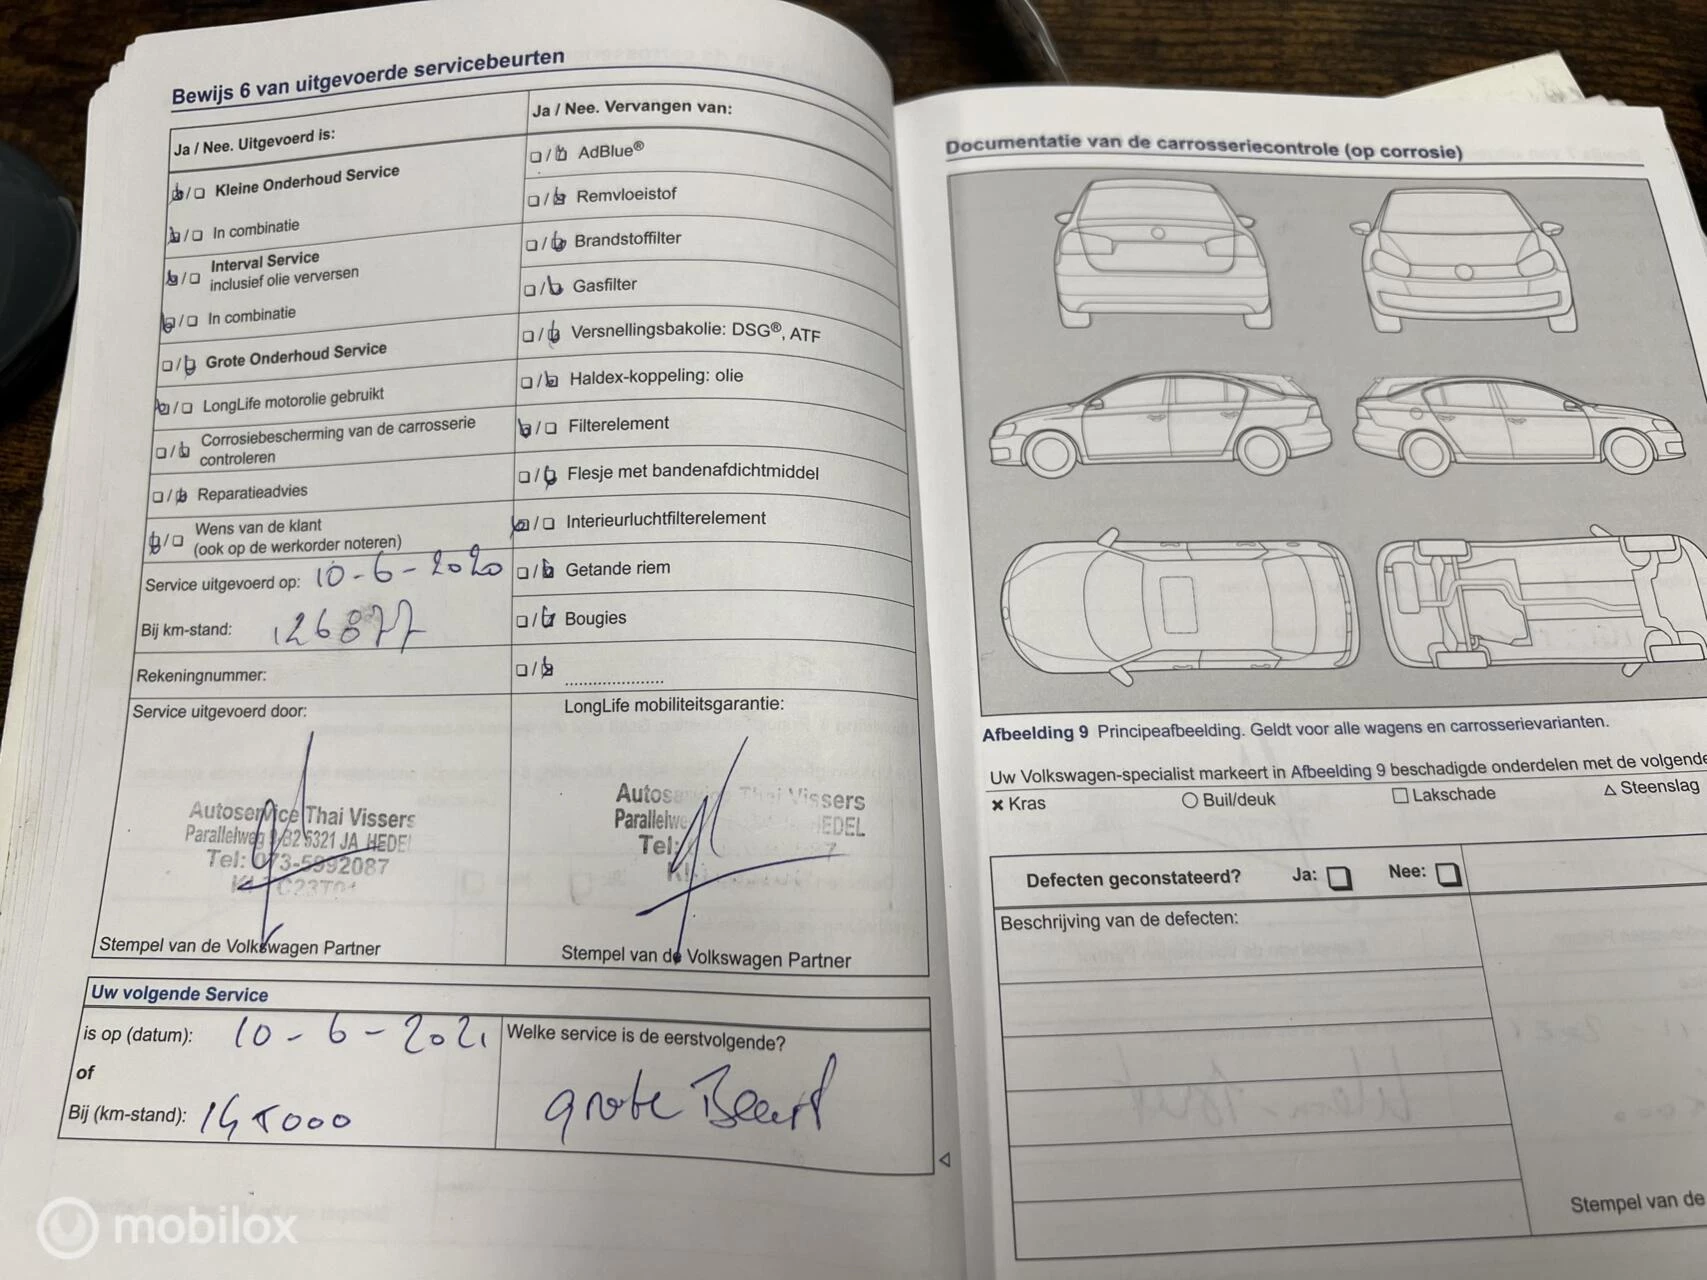 Bewijs 6 van uitgevoerde servicebeurten
Ja / Nee. Uitgevoerd is:
/ Kleine Onderhoud Service
/ In combinatie
/ Interval Service
inclusief olie verversen
/ In combinatie
/ Grote Onderhoud Service
/ LongLife motorolie gebruikt
/ Corrosiebescherming van de carrosserie
controleren
/ Reparatieadvies
/ Wens van de klant
(ook op de werkorder noteren)
Service uitgevoerd op: 10-6-2020
Bij km-stand: 126877
Rekeningnummer:
Ja / Nee. Vervangen van:
/ AdBlue®
/ Remvloeistof
/ Brandstoffilter
/ Gasfilter
/ Versnellingsbakolie: DSG®, ATF
/ Haldex-koppeling: olie
/ Filterelement
/ Flesje met bandenafdichtmiddel
/ Interieurluchtfilterelement
/ Getande riem
/ Bougies
/ ....................
Service uitgevoerd door:
Autoservice Thai Vissers
Parallelweg 5321 JA HEDEL
Tel: 073-5992087
Stempel van de Volkswagen Partner
LongLife mobiliteitsgarantie:
Thai Vissers
HEDEL
Tel:
Stempel van de Volkswagen Partner
Uw volgende Service
is op (datum): 10-6-2021
of
Bij (km-stand): 145000
Welke service is de eerstvolgende?
grote Beurt
Documentatie van de carrosseriecontrole (op corrosie)
Afbeelding 9 Principeafbeelding. Geldt voor alle wagens en carrosserievarianten.
Uw Volkswagen-specialist markeert in Afbeelding 9 beschadigde onderdelen met de volgende
Kras
Buil/deuk
Lakschade
Steenslag
Defecten geconstateerd? Ja: Nee:
Beschrijving van de defecten:
Stempel van de
mobilox